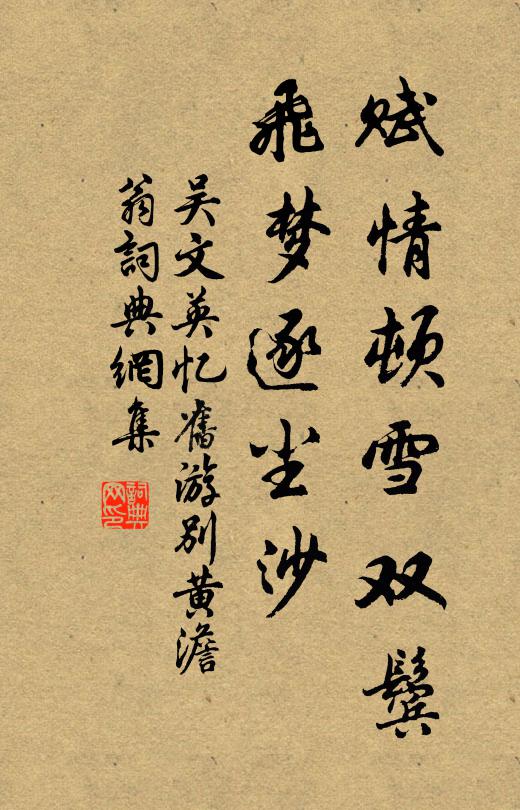 赋情顿雪双鬓
飞梦逐尘沙
吴文英忆旧游别黄澹
翁詞典網集
詞典网印